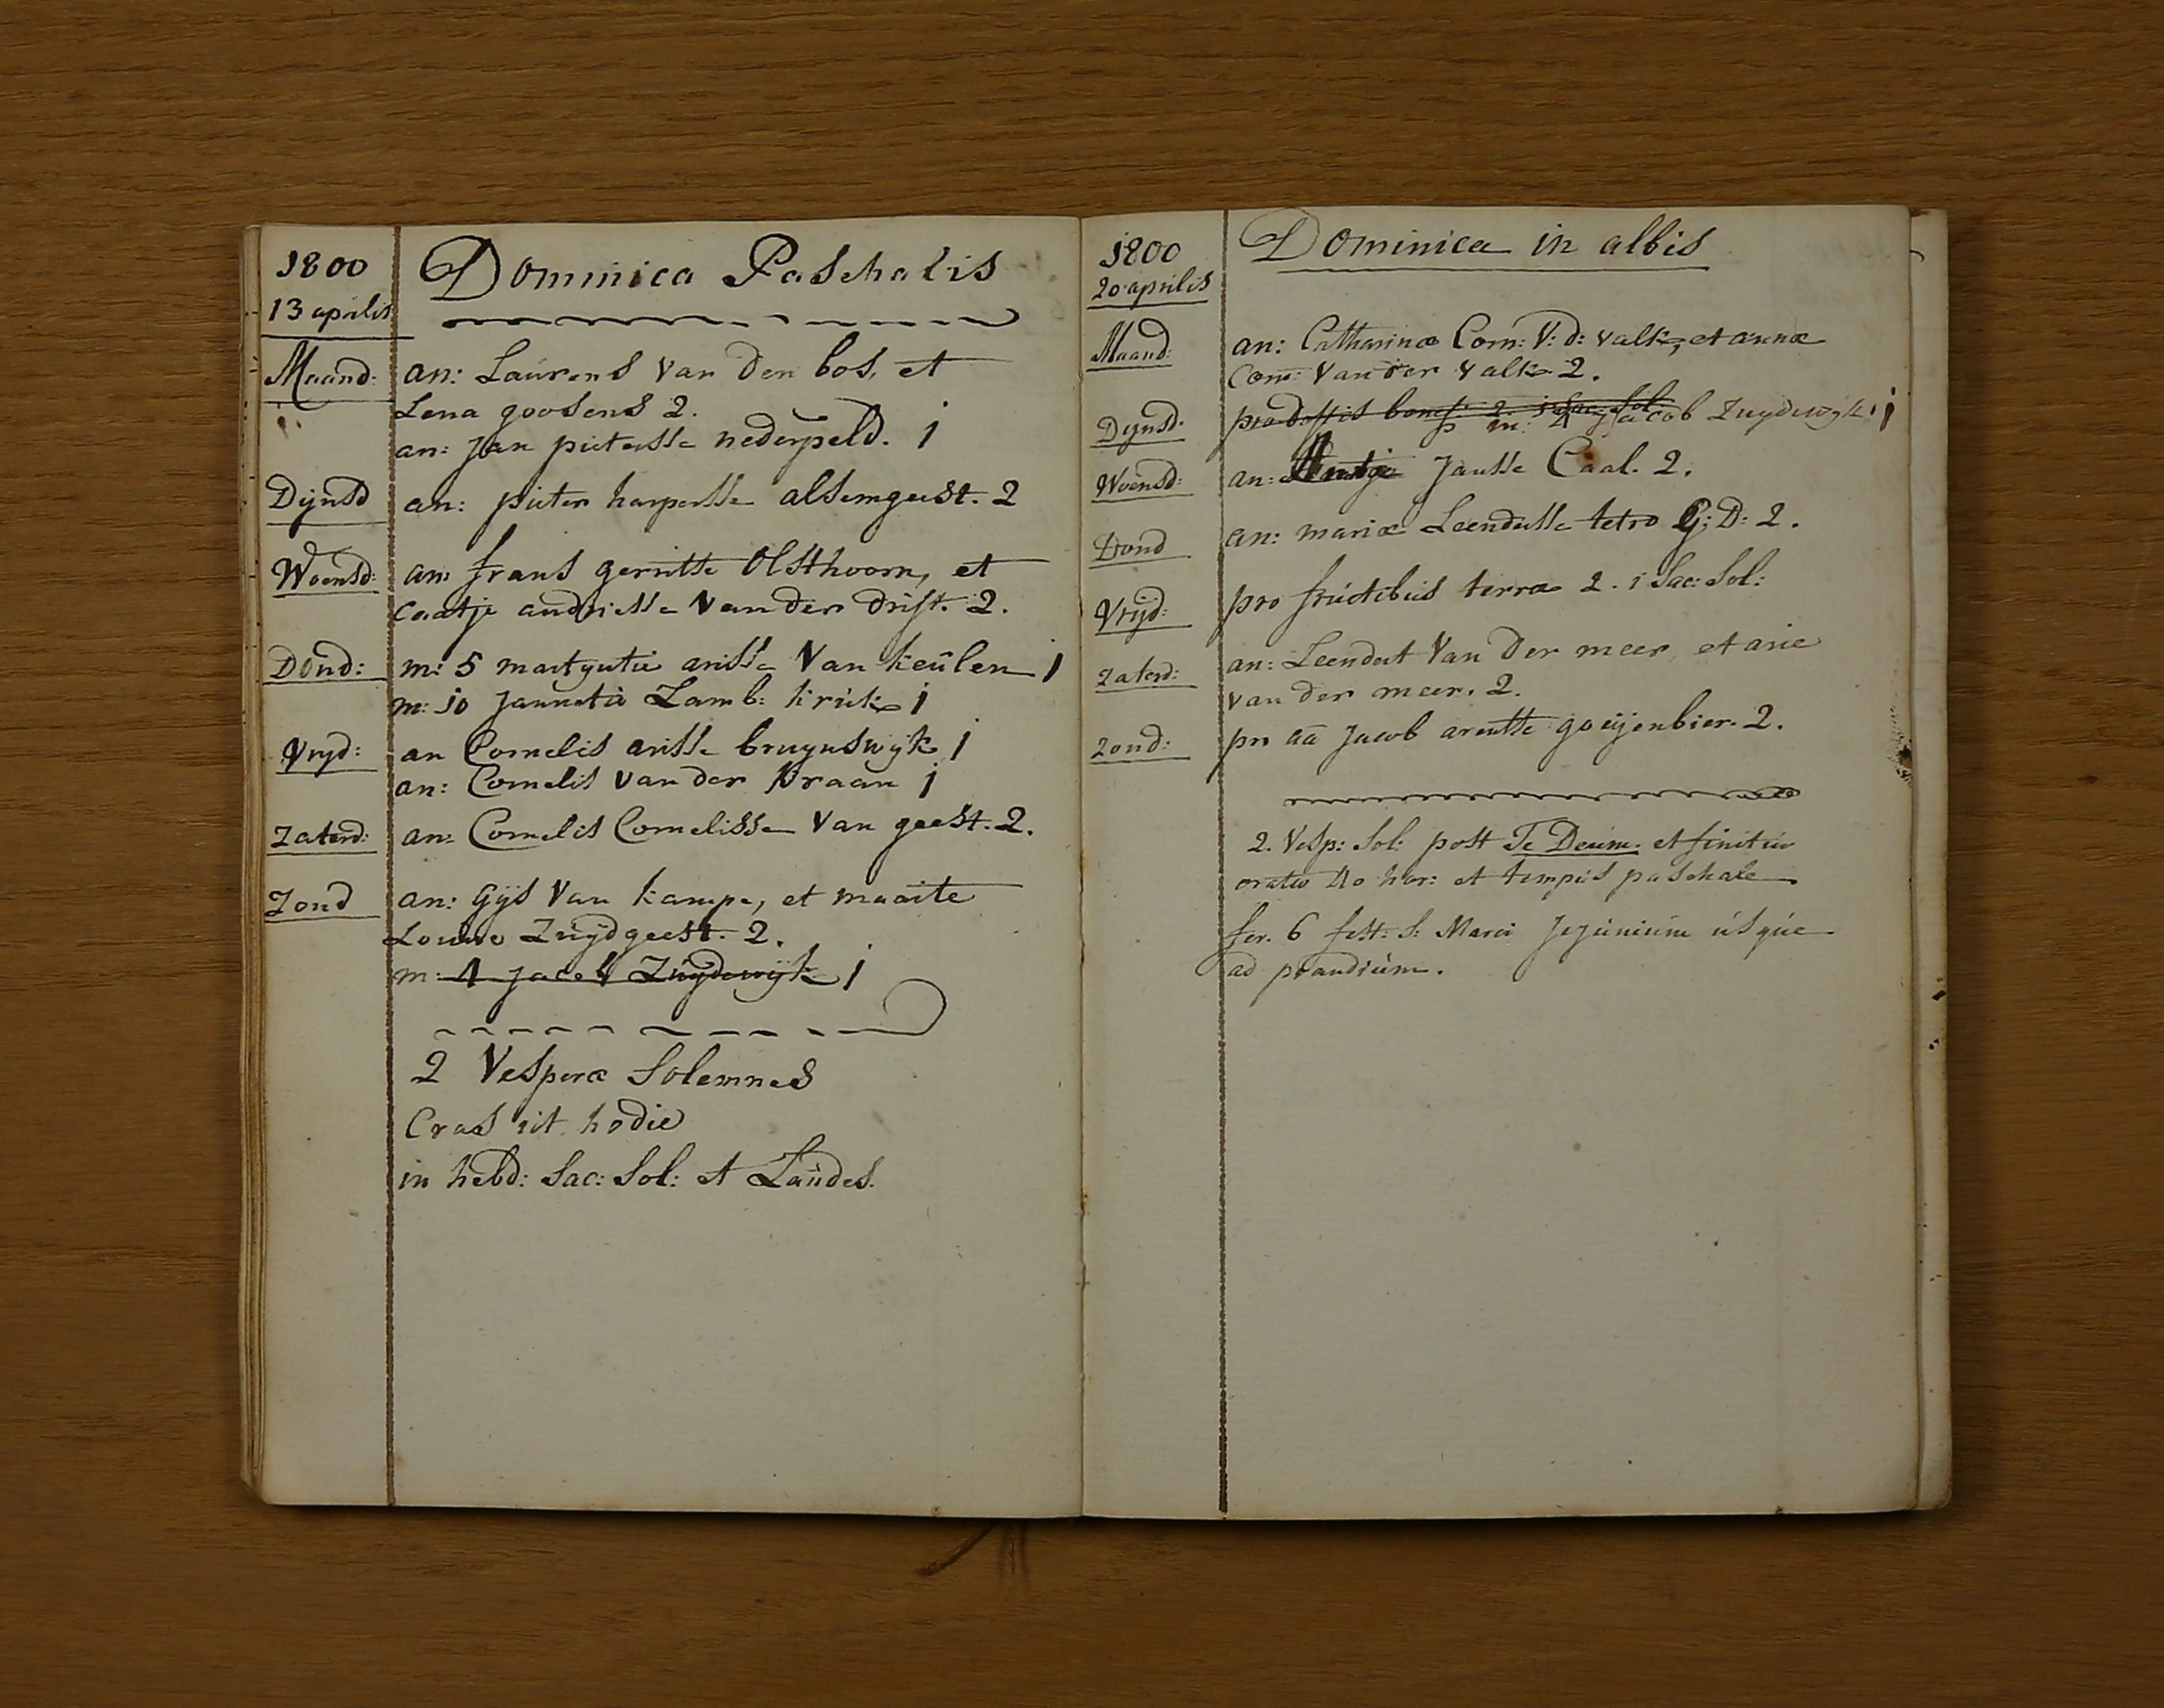 1800
13 aprilis
Dominica Paschalis
Maand: an: Laurens Van Den bos, et
Lena goosens 2.
an: Jan pietersse nederpeld. j
Dijnsd an: pieter harpersse alsemgeest. 2
Woensd: an: frans gerritse Olsthoorn, et
caatje andriesse Van der drift. 2.
Dond: m: 5 martyntie arisse Van keulen j
m: 10 Jannetia Lamb: krick j
Vryd: an Cornelis arisse bruynswijk j
an: Cornelis van der kraan j
Zaterd: an: Cornelis Cornelisse Van geest. 2.
Zond an: Gijs Van kampe, et maarte
Louwe Zuijdgeest. 2.
m: 4 Jacob Zuydewijk j
2 Vesperæ Solemnes
Cras ut hodie
in hebd: Sac: Sol: et Laudes.
1800
20 aprilis
Dominica in albis
Maand: an: Catharinæ Corn: V: d: valk, et annæ
Corn: Van der valk 2.
Dynsd: pro 2. Sac: Sol:
m: 4 Jacob Zuydewyk j
Woensd: an: Jansse Caal. 2.
Dond an: mariæ Leendertsse tetro G: D: 2.
Vryd: pro fructibus terræ 2. i Sac: Sol:
Zaterd: an: Leendert Van Der meer, et arie
van der meer. 2.
Zond: pro aā Jacob arentse goeijenbier. 2.
2. Vesp: Sol: post Te Deum. et finitur
oratio 40 hor: et tempus paschale
fer. 6 fest: S: Marci Jejunium usque
ad prandium.